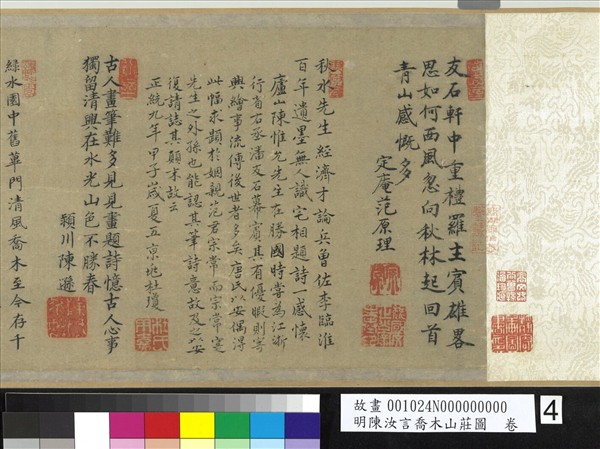 友石軒中重禮羅主賓雄畧
思如何西風忽向秋林起回首
青山感慨多
定庵范原理
秋水先生經濟才論兵曾佐李臨淮
百年遺墨無人識宅相題詩一感懷
廬山陳惟允先生在勝國時嘗為江浙
行省右丞潘友石幕賓其有優暇則寄
興繪事流傳後世者多矣唐氏以安偶得
此幅求題於姻親范君宗常而宗常寔
先生之外孫也能認其筆詩意故及之以安
復請誌其顛末故云
正統九年甲子歲夏五京兆杜瓊
古人畫筆難多見見畫題詩憶古人心事
獨留清興在水光山色不勝春
潁川陳遜
綠水園中舊蓽門清風喬木至今存千
故畫 001024N000000000
明陳汝言喬木山莊圖 卷
4